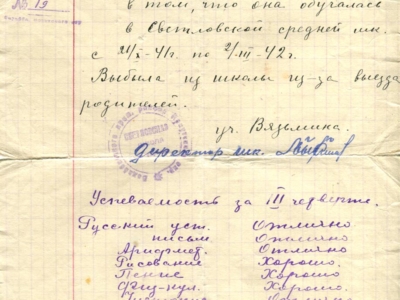 № 19
в том, что она обучалась
в Светловской средней шк.
с 21/X-41г. по 2/III-42г.
Выбыла из школы из-за выезда
родителей.
уч. Вязьмина.
Директор шк.
Успеваемость за III четверть.
Русский уст. Отлично
письм. Отлично
Арифмет. Отлично
Рисование Хорошо.
Пение Хорошо
Физ-кул. Хорошо